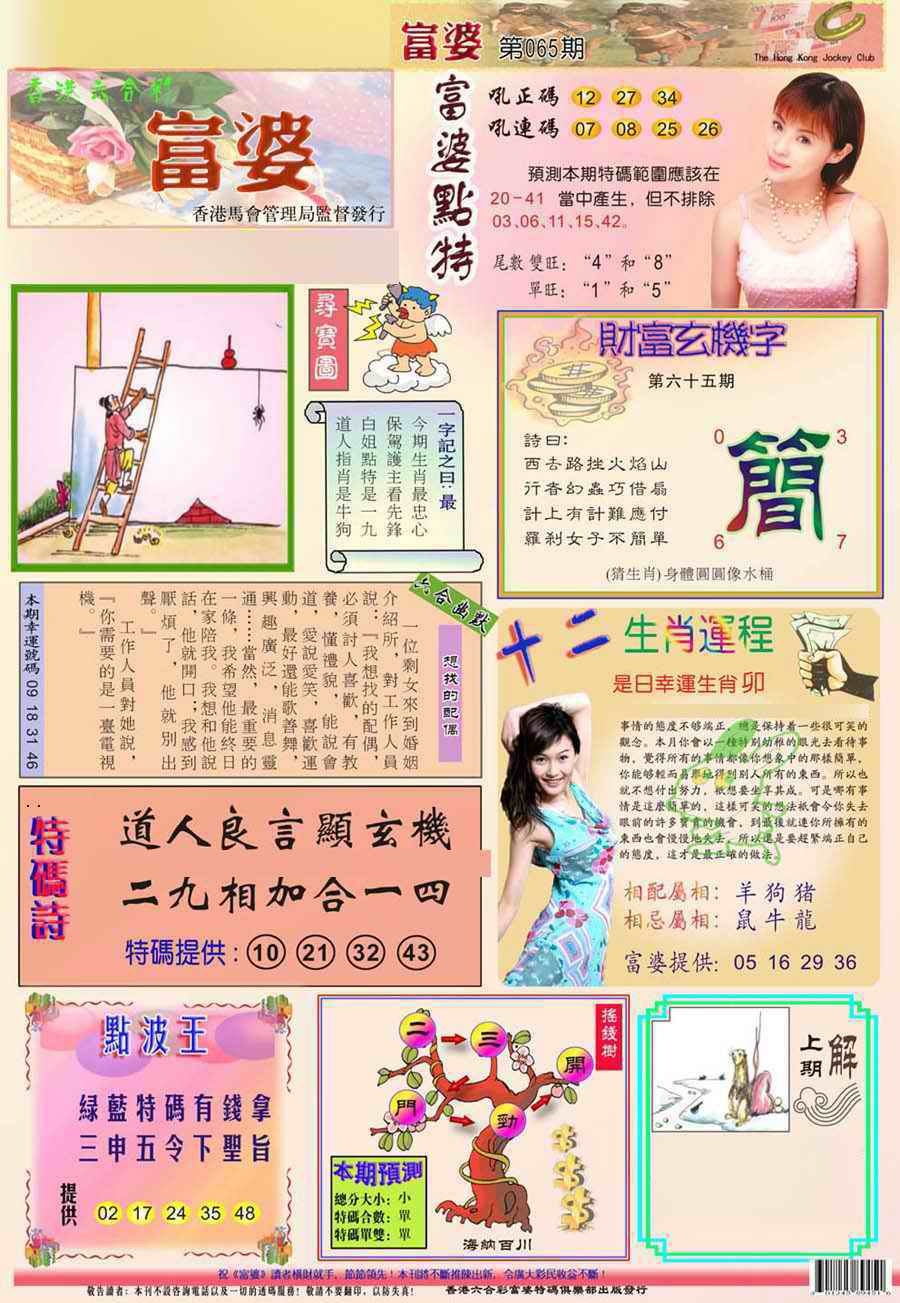 富婆 第065期
The Hong Kong Jockey Club
香港六合彩
富婆
香港馬會管理局監督發行
富婆點特
吼正碼 12 27 34
吼連碼 07 08 25 26
預測本期特碼範圍應該在
20-41 當中產生，但不排除
03、06、11、15、42。
尾數雙旺：“4”和“8”
單旺：“1”和“5”
尋寶圖
一字記之曰：最
今期生肖最忠心
保駕護主看先鋒
白姐點特是一九
道人指肖是牛狗
財富玄機字
第六十五期
詩曰：
西去路挫火焰山
行者幻蟲巧借扇
計上有計難應付
羅剎女子不簡單
0 3
簡
6 7
(猜生肖)身體圓圓像水桶
六合幽默
想找的配偶
一位剩女來到婚姻
介紹所，對工作人員
說：『我想找的配偶，
必須討人喜歡，有教
養，懂禮貌，能說會
道，愛說愛笑，喜歡運
動，最好還能歌善舞，
興趣廣泛，消息靈
通……當然，最重要的
一條，我希望他能終日
在家陪我。我想和他說
話，他就開口；我感到
厭煩了，他就別出
聲。』
工作人員對她說，
『你需要的是一臺電視
機。』
本期幸運號碼 09 18 31 46
十二生肖運程
是日幸運生肖 卯
事情的態度不够端正，總是保持着一些很可笑的
觀念。本月你會以一種特别幼稚的眼光去看待事
物，覺得所有的事情都像你想象中的那樣簡單，
你能够輕而易舉地得到别人所有的東西。所以也
就不想付出努力，衹想要坐享其成。可是哪有事
情是這麽簡單的，這樣可笑的想法衹會令你失去
眼前的許多寶貴的機會，到最後就連你所擁有的
東西也會慢慢地失去，所以還是要趕緊端正自己
的態度，這才是最正確的做法。
相配屬相：羊狗豬
相忌屬相：鼠牛龍
富婆提供：05 16 29 36
特碼詩
道人良言顯玄機
二九相加合一四
特碼提供：10 21 32 43
點波王
綠藍特碼有錢拿
三申五令下聖旨
提供 02 17 24 35 48
搖錢樹
二 三
開
門
勁
本期預測
總分大小：小
特碼合數：單
特碼單雙：單
海納百川
上期解
祝《富婆》讀者橫財就手，節節領先！本刊將不斷推陳出新，令廣大彩民收益不斷！
敬告讀者：本刊不設咨詢電話以及一切的透碼服務！敬請不要翻印，以防失真！ 香港六合彩富婆特碼俱樂部出版發行